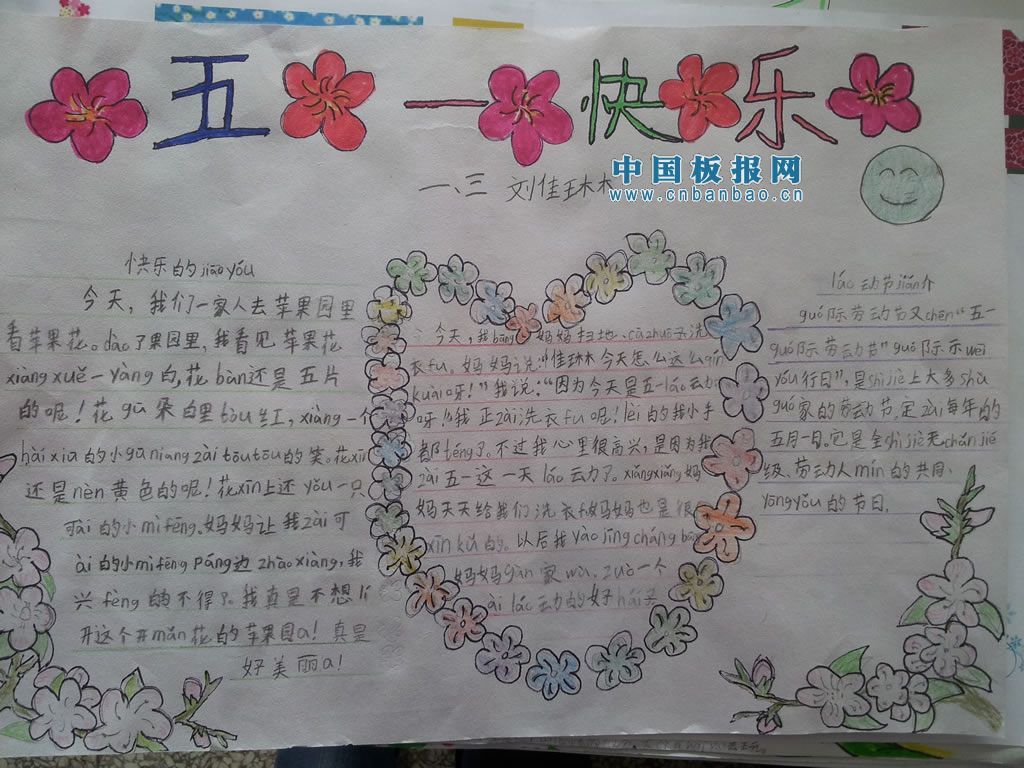 五一快乐
中国板报网
www.cnbanbao.cn
一、三 刘佳琳
快乐的jiāo yóu
今天，我们一家人去苹果园里
看苹果花。dào了果园里，我看见苹果花
xiàng xuě一yàng白，花bàn还是五片
的呢！花gū朵白里tòu红，xiàng一个
hài xiū的小gū niang zài tōu tōu的笑。花xīn
还是nèn黄色的呢！花xīn上还yǒu一只
可ài的小mì fēng。妈妈让我zài可
ài的小mì fēng páng边zhào xiàng，我
兴fèng的不得了。我真是不想lí
开这个开mǎn花的苹果园a！真是
好美丽a！
今天，我bāng妈妈扫地、cā zhuō子、洗
衣fu。妈妈说：“佳琳今天怎么这么qín
kuài呀！”我说：“因为今天是五一láo动
呀！”我正zài洗衣fu呢！lèi的我小手
都téng了。不过我心里很高兴，是因为我
zài五一这一天láo动了。xiǎng xiǎng妈
妈天天给我们洗衣fu妈妈也是很
xīn kǔ的。以后我yào jīng cháng bāng
妈妈gàn家wù、zuò一个
ài láo动的好hái子
láo动节jiǎn介
guó际劳动节又chēn“五一
guó际劳动节”guó际示wēi
yóu行日”，是shì jiè上大多shù
guó家的劳动节。定zài每年的
五月一日。它是全shì jiè无chǎn jiē
级、劳动人mín的共同
yōng yǒu的节日。